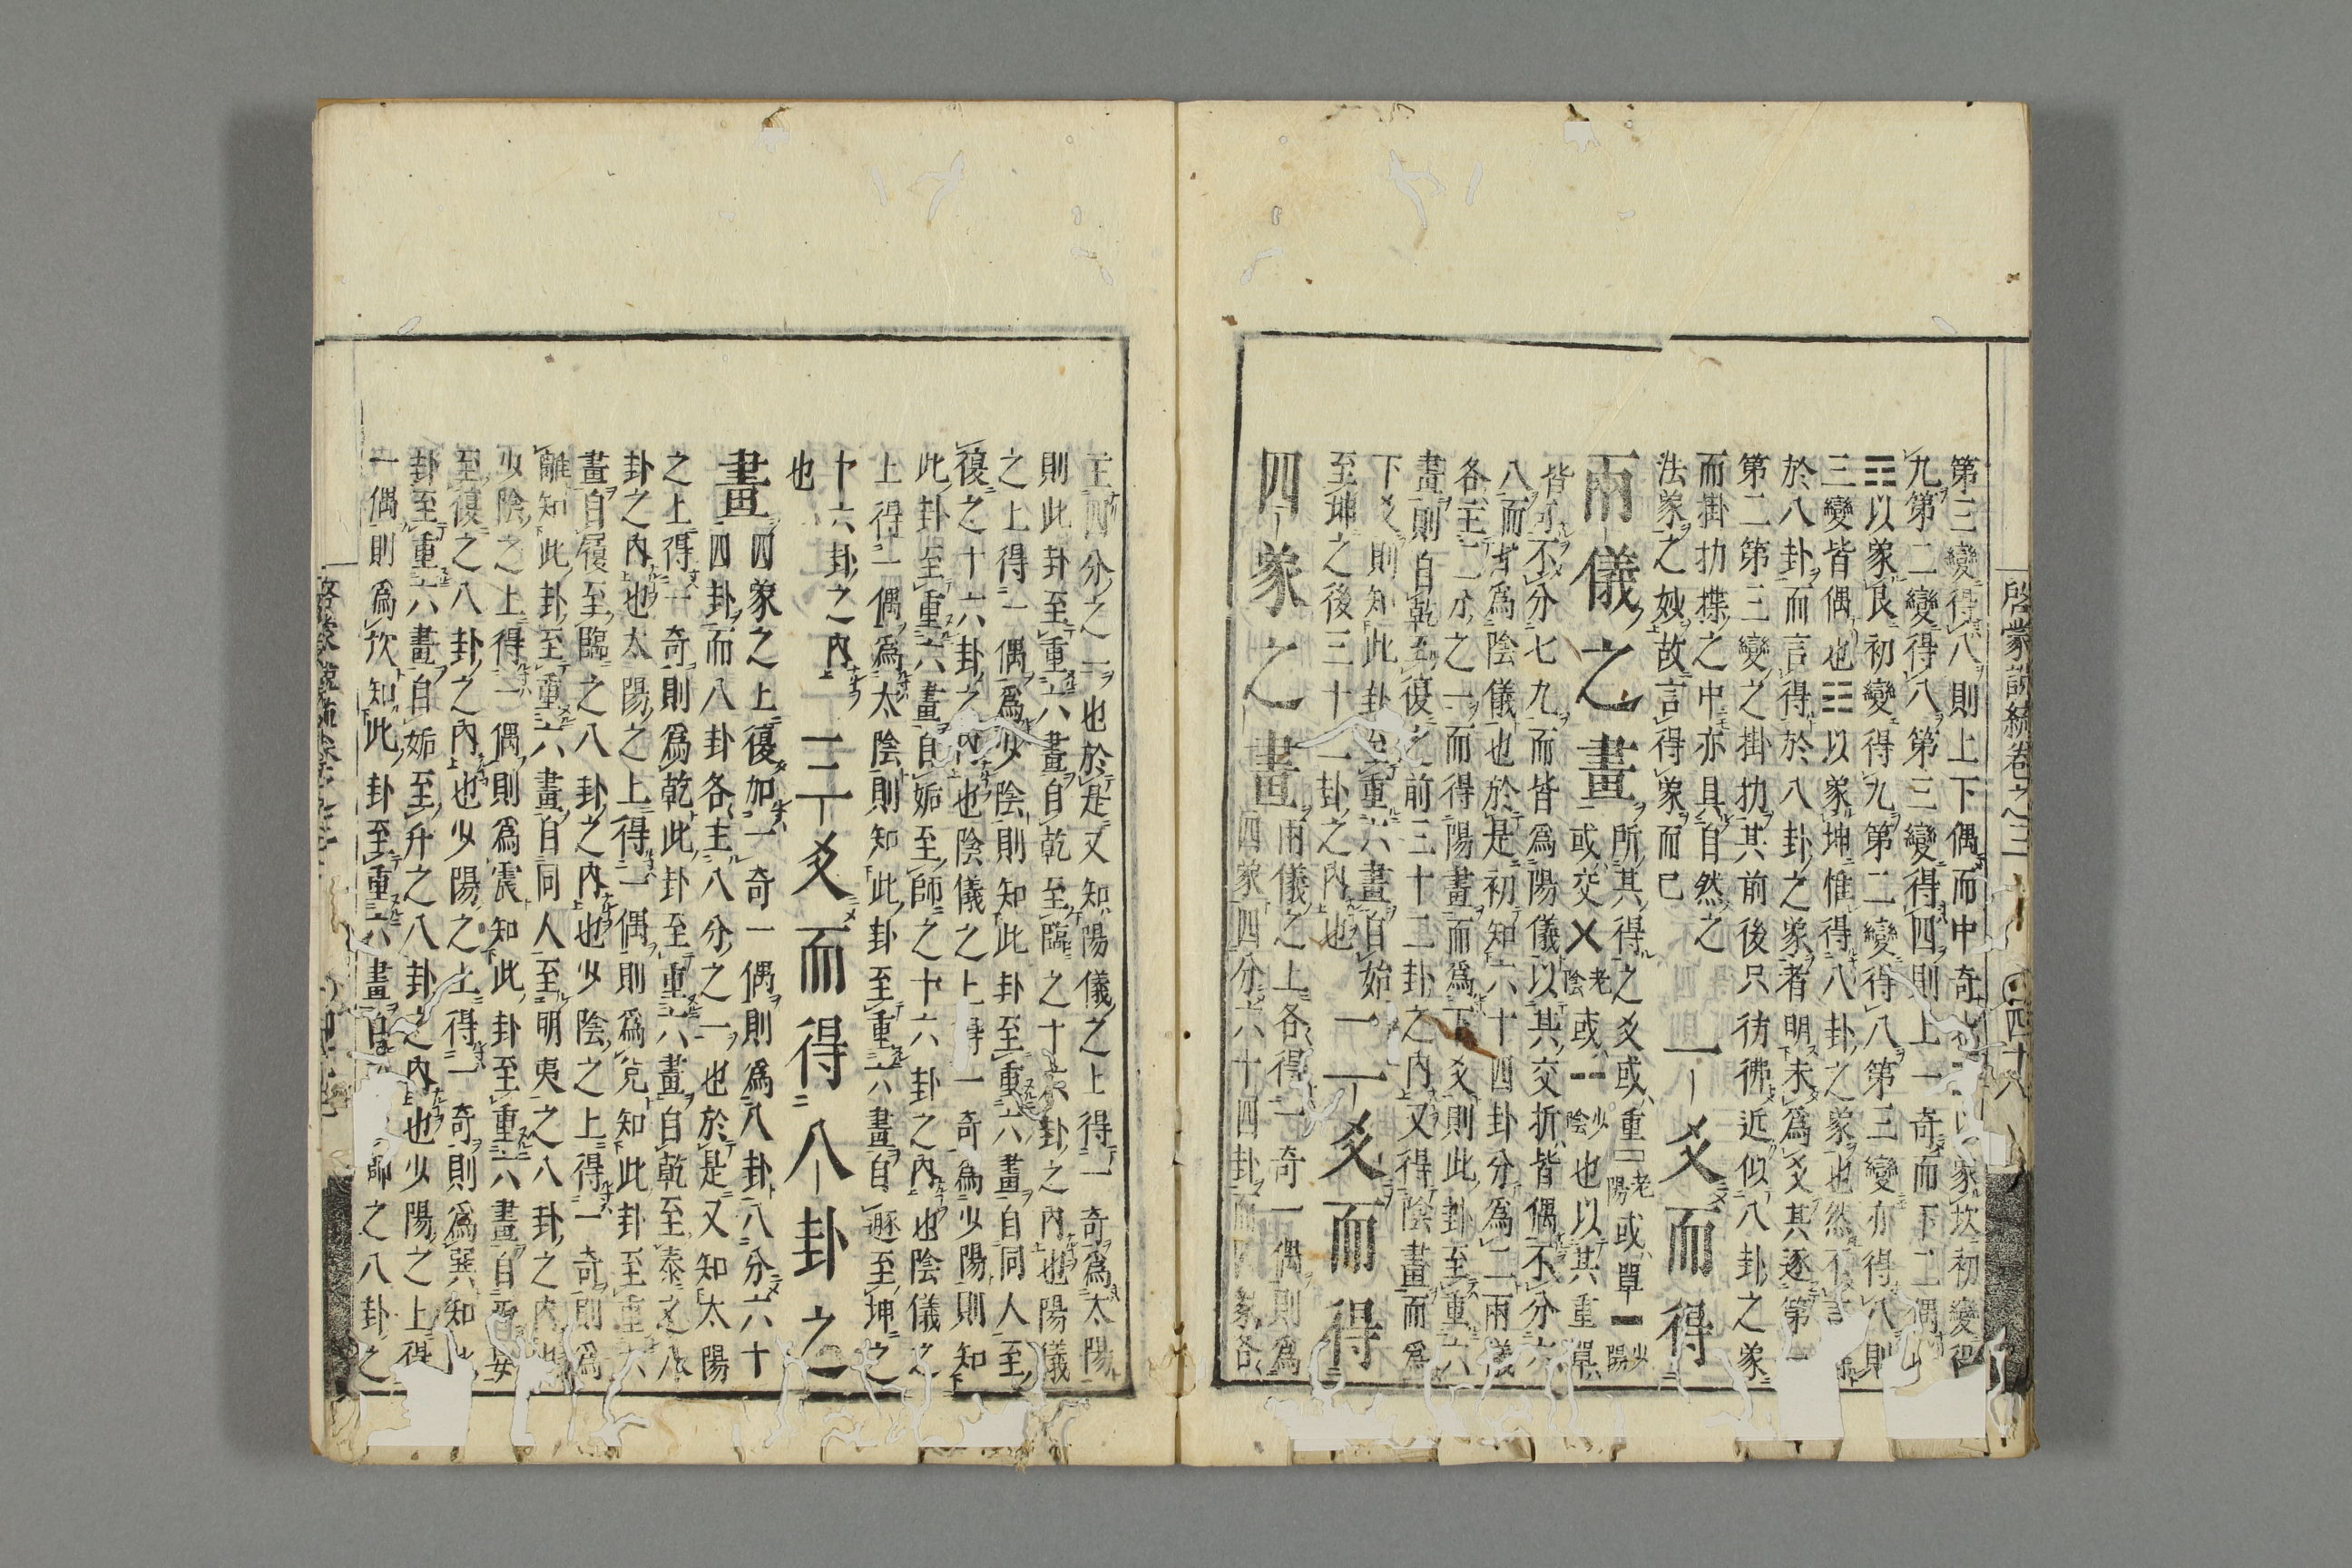 啓蒙説統卷之三 四十八
第三變得八則上下偶而中奇 以象坎初變得
九第二變得八第三變得四則上一奇而下二偶
☶以象艮初變得九第二變得八第三變亦得八則
三變皆偶也☷以象坤惟得八卦之象也然不
於八卦而言得於八卦之象者明未爲爻其逐第一
第二第三變之掛扐其前後只彷彿近似八卦之象
而掛扐揲之中亦具自然之
法象之妙故言得象而已
一爻而得
兩儀之畫
所其得之爻或重 老陽或單 少陽
或交 老陰或 少陰也以其重單
皆奇不分七九而皆爲陽儀以其交折皆偶不分六
八而皆爲陰儀也於是初知六十四卦分爲二兩儀
各主二分之一而得陽畫而爲下爻則此卦至重六
畫則自乾至復之前三十二卦之内又得陰畫而爲
下爻則知此卦至重六畫自姤
至坤之後三十一卦之内也
二爻而得
四象之畫
兩儀之上各得一奇一偶則爲
四象四分六十四卦而四象各
主四分之一也於是又知陽儀之上得一奇爲太陽
則此卦至重六畫自乾至臨之十六卦之内也陽儀
之上得一偶爲少陰則知此卦至重六畫自同人至
復之十六卦之内也陰儀之上得一奇爲少陽則知
此卦至重六畫自姤至師之十六卦之内也陰儀之
上得一偶爲太陰則知此卦至重六畫自遯至坤之
十六卦之内
也
三爻而得八卦之
畫
四象之上復加一奇一偶則爲八卦八分六十
四卦而八卦各主八分之一也於是又知太陽
之上得一奇則爲乾此卦至重六畫自乾至泰之八
卦之内也太陽之上得一偶則爲兌知此卦至重六
畫自履至臨之八卦之内也少陰之上得一奇則爲
離知此卦至重六畫自同人至明夷之八卦之内也
少陰之上得一偶則爲震知此卦至重六畫自无妄
至復之八卦之内也少陽之上得一奇則爲巽知
卦至重六畫自姤至升之八卦之内也少陽之上得
一偶則爲坎知此卦至重六畫自 師之八卦之